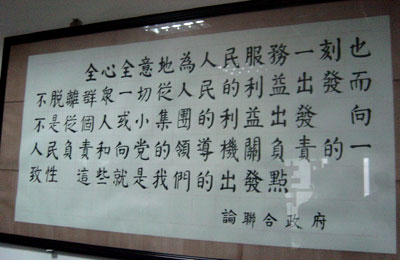 全心全意地為人民服務一刻也
不脫離群眾一切從人民的利益出發而
不是從個人或小集團的利益出發 向
人民負責和向党的領導機關負責的一
致性 這些就是我們的出發點
論聯合政府